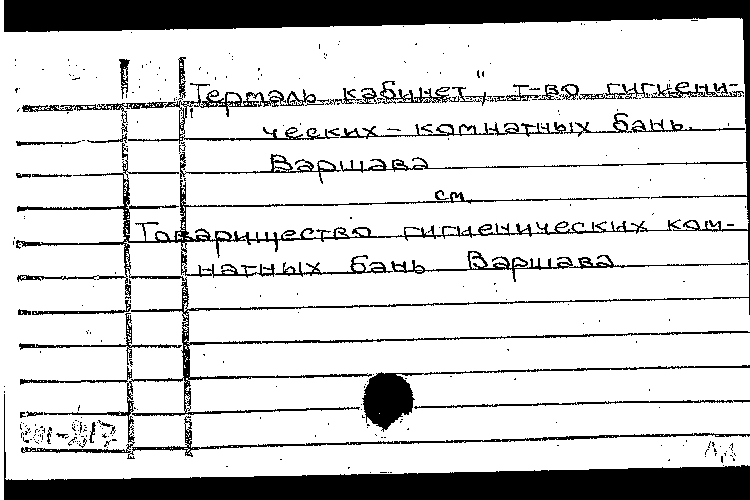 "Термаль кабинет", т-во гигиени-
ческих-комнатных бань.
Варшава
см.
Товарищество гигиенических ком-
натных бань Варшава